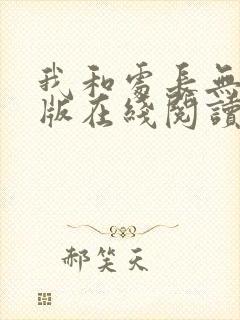 我和處長無
版在綫閱讀
郝笑天